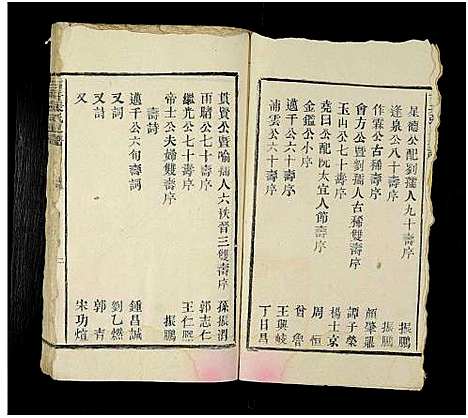 星德公配劉孺人九十壽序 振鵬
逢泉公八十壽序 振鵬
作霖公古稀壽序 顏肇
會方公暨劉孺人古稀雙壽序 譚子榮
玉山公七十壽序 楊士京
堯曰公配阮太宜人節壽序 周恒
金鑑公小序 曾魯
邁千公六十壽序 王興岐
浦雲公六十壽序 丁日昌
貫賢公暨喻孺人六袟晉三雙壽序 孫振渭
雨疇公七十壽序 郭志仁
繼光公七十壽序 王仁熙
帝士公夫婦雙壽序 振鵬
壽詩
邁千公六旬壽詞 鍾昌誠
又詞 劉乙燃
又詩 郭青
又 宋功煊